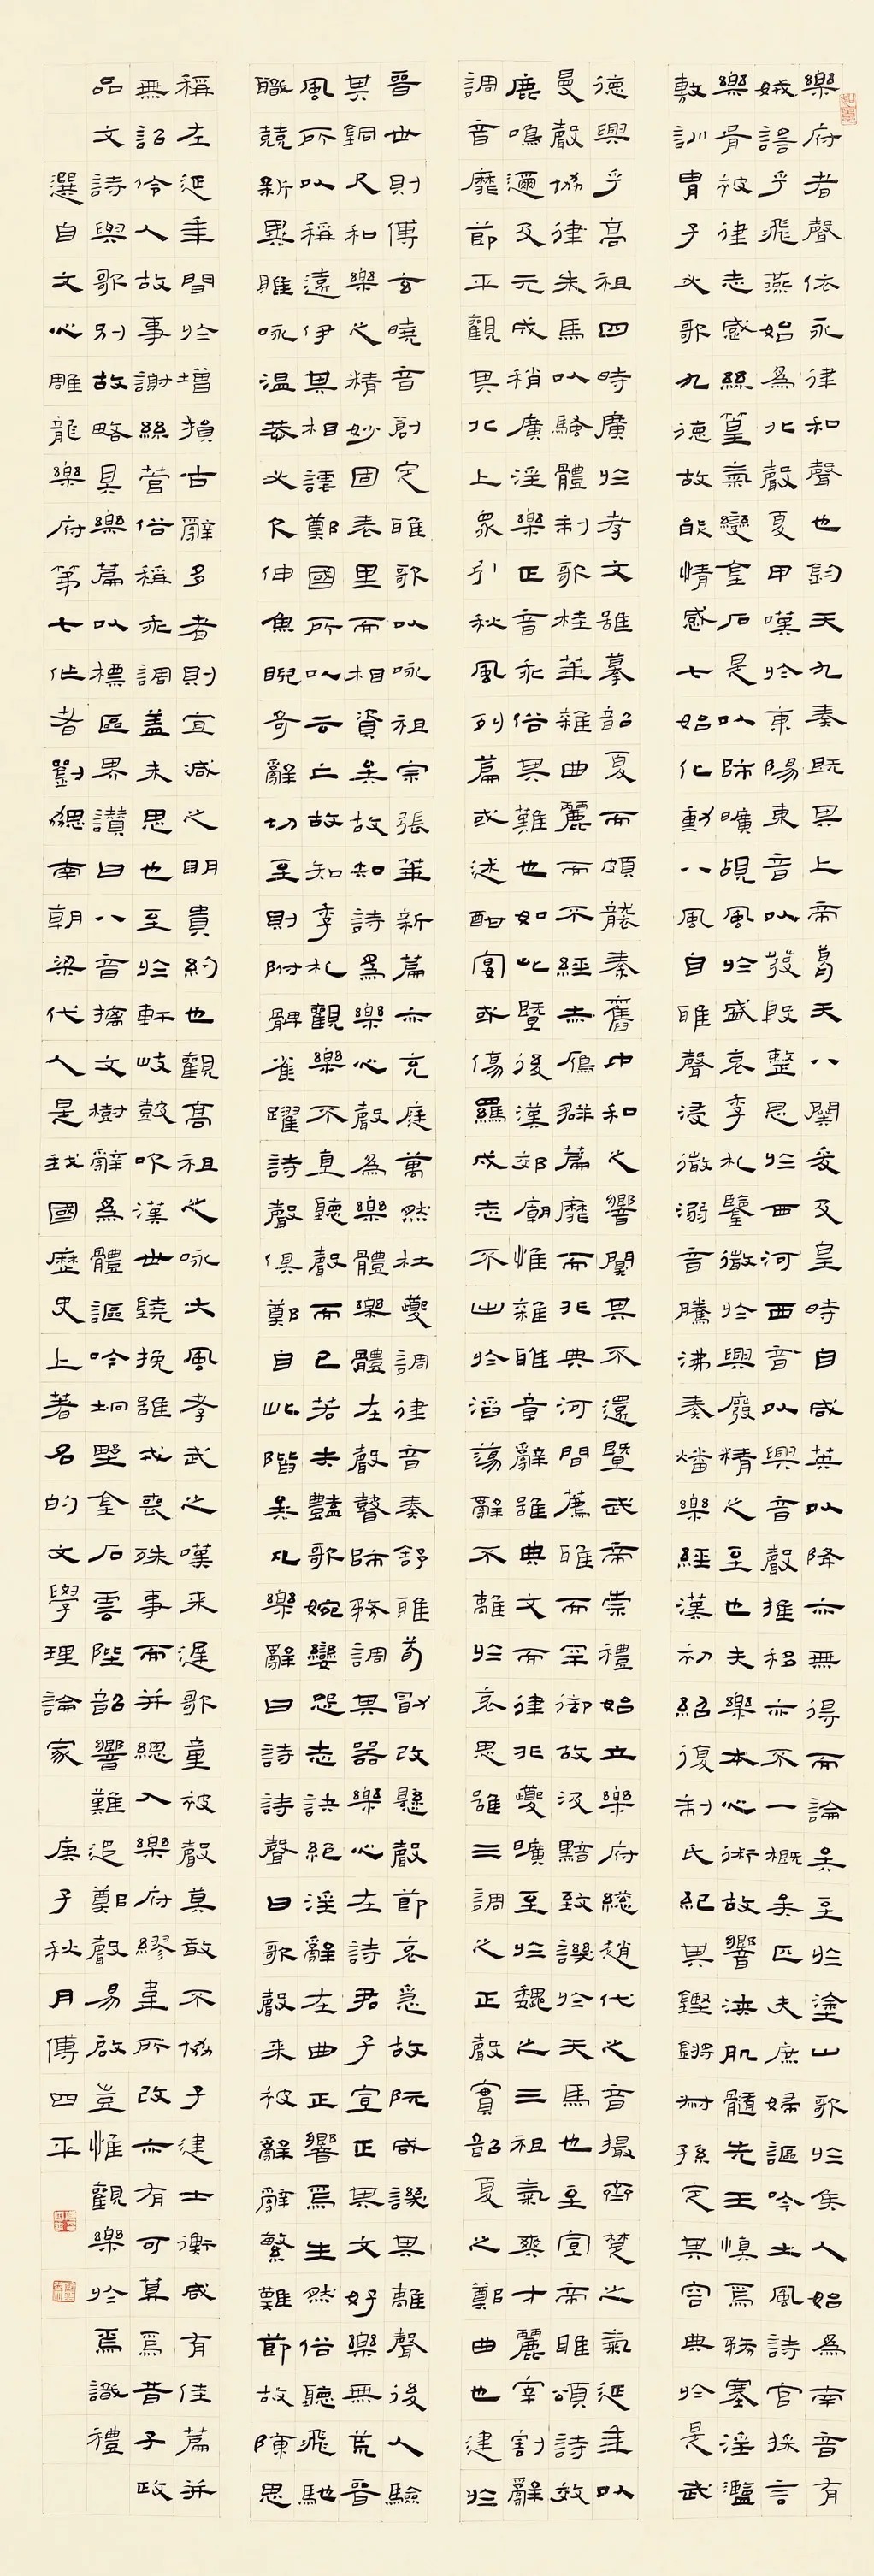 樂府者聲依永律和聲也鈞天九奏既其上帝葛天八闋爰及皇時自咸英以降亦無得而論矣至於塗山歌於侯人始為南音有
娀謠乎飛燕始為北聲夏甲嘆於東陽東音以發殷整思於西河西音以興音聲推移亦不一概矣匹夫庶婦謳吟土風詩官採言
樂胥被律志感絲篁氣變金石是以師曠覘風於盛衰季札鑒微於興廢精之至也夫樂本心術故響浹肌髓先王慎焉務塞淫濫
敷訓胄子必歌九德故能情感七始化動八風自雅聲浸微溺音騰沸秦燔樂經漢初紹復制氏紀其鏗鏘叔孫定其容典於是武
德興乎高祖四時廣於孝文雖摹韶夏而頗襲秦舊中和之響闃其不還暨武帝崇禮始立樂府總趙代之音撮齊楚之氣延年以
曼聲協律朱馬以騷體制歌桂華雜曲麗而不經赤雁群篇靡而非典河間薦雅而罕御故汲黯致譏於天馬也至宣帝雅頌詩效
鹿鳴邇及元成稍廣淫樂正音乖俗其難也如此暨後漢郊廟惟雜雅章辭雖典文而律非夔曠至於魏之三祖氣爽才麗宰割辭
調音靡節平觀其北上眾引秋風列篇或述酣宴或傷羈戍志不出於滔蕩辭不離於哀思雖三調之正聲實韶夏之鄭曲也逮於
晉世則傅玄曉音創定雅歌以詠祖宗張華新篇亦充庭萬然杜夔調律音奏舒雅荀勖改懸聲節哀急故阮咸譏其離聲後人驗
其銅尺和樂之精妙固表里而相資矣故知詩為樂心聲為樂體樂體在聲瞽師務調其器樂心在詩君子宜正其文好樂無荒晉
風所以稱遠伊其相謔鄭國所以云亡故知季札觀樂不直聽聲而已若夫艷歌婉孌怨志訣絕淫辭在曲正響焉生然俗聽飛馳
職競新異雅詠溫恭必欠伸魚睨奇辭切至則拊髀雀躍詩聲俱鄭自此階矣凡樂辭曰詩詩聲曰歌聲來被辭辭繁難節故陳思
稱左延年閒於增損古辭多者則宜減之明貴約也觀高祖之詠大風孝武之嘆來遲歌童被聲莫敢不協子建士衡咸有佳篇并
無詔伶人故事謝絲管俗稱乖調蓋未思也至於軒岐鼓吹漢世鐃挽雖戎喪殊事而并總入樂府繆韋所改亦有可算焉昔子政
品文詩與歌別故略具樂篇以標區界讚曰八音摛文樹辭為體謳吟坰野金石雲陛韶響難追鄭聲易啟豈惟觀樂於焉識禮
選自文心雕龍樂府第七作者劉勰南朝梁代人是我國歷史上著名的文學理論家 庚子秋月傅四平